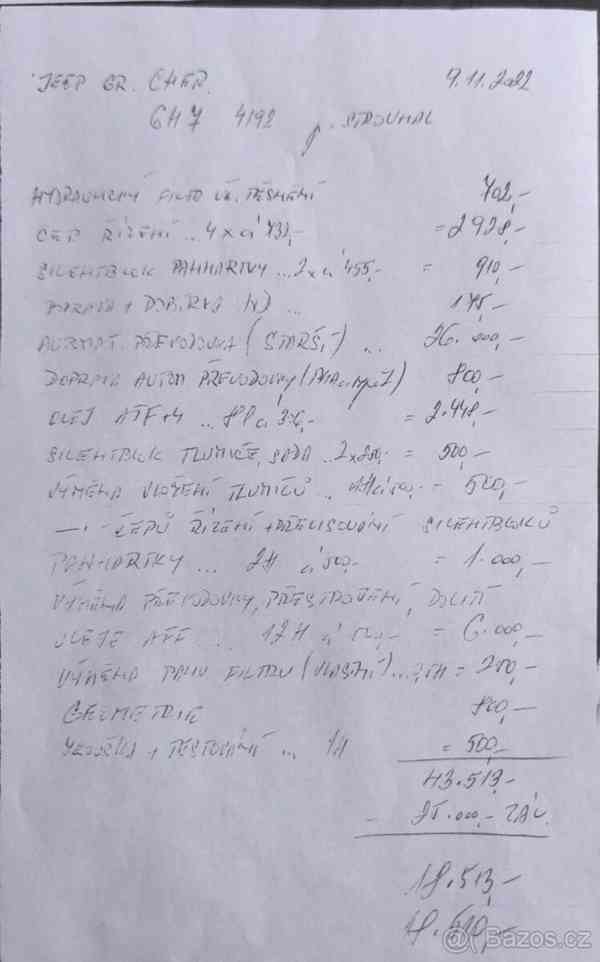 JEEP GR. CHER. 9.11.2022
6H7 4192 p. STROUHAL
HYDRAULICKÝ FILTR VČ. TĚSNĚNÍ 702,-
ČEP ŘÍZENÍ .. 4x á 732,- = 2928,-
SILENTBLOK PANHARTKY ... 2x á 455,- = 910,-
DOPRAVA + DOBÍRKA ... 175,-
AUTOMAT. PŘEVODOVKA (STARŠÍ) ... 26.000,-
DOPRAVA AUTOM PŘEVODOVKY ( 800,-
OLEJ ATF+4 .. 8l á = 2.448,-
SILENTBLOK TLUMIČE, SADA .. 2x250,- = 500,-
VÝMĚNA ULOŽENÍ TLUMIČŮ .. 1H á 500,- = 500,-
—„— ČEPŮ ŘÍZENÍ + PŘELISOVÁNÍ SILENTBLOKŮ
PANHARTKY ... 2H á 500,- = 1.000,-
VÝMĚNA PŘEVODOVKY, PŘESTROJENÍ, DOLITÍ
OLEJE ATF ... 12H á 500,- = 6.000,-
VÝMĚNA PALIV FILTRU (VLASTNÍ) ... = 250,-
GEOMETRIE 800,-
ZKOUŠKA + TESTOVÁNÍ ... 1H = 500,-
43.513,-
- 25.000,- ZÁL.
18.513,-
18.510,-
Bazos.cz